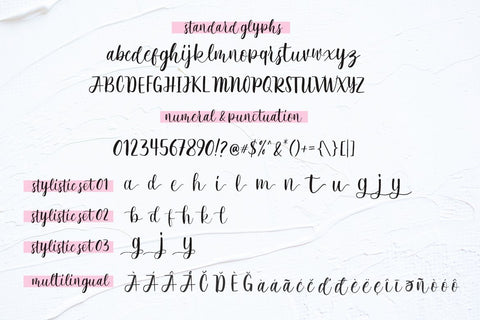 standard glyphs
abcdefghijklmnopqrstuvwxyz
ABCDEFGHIJKLMNOPQRSTUVWXYZ
numeral & punctuation
01234567890!?@#$%^&*()+={\}[|]
stylistic set 01 a d e h i l m n t u g j y
stylistic set 02 b d f h k l
stylistic set 03 g j y
multilingual